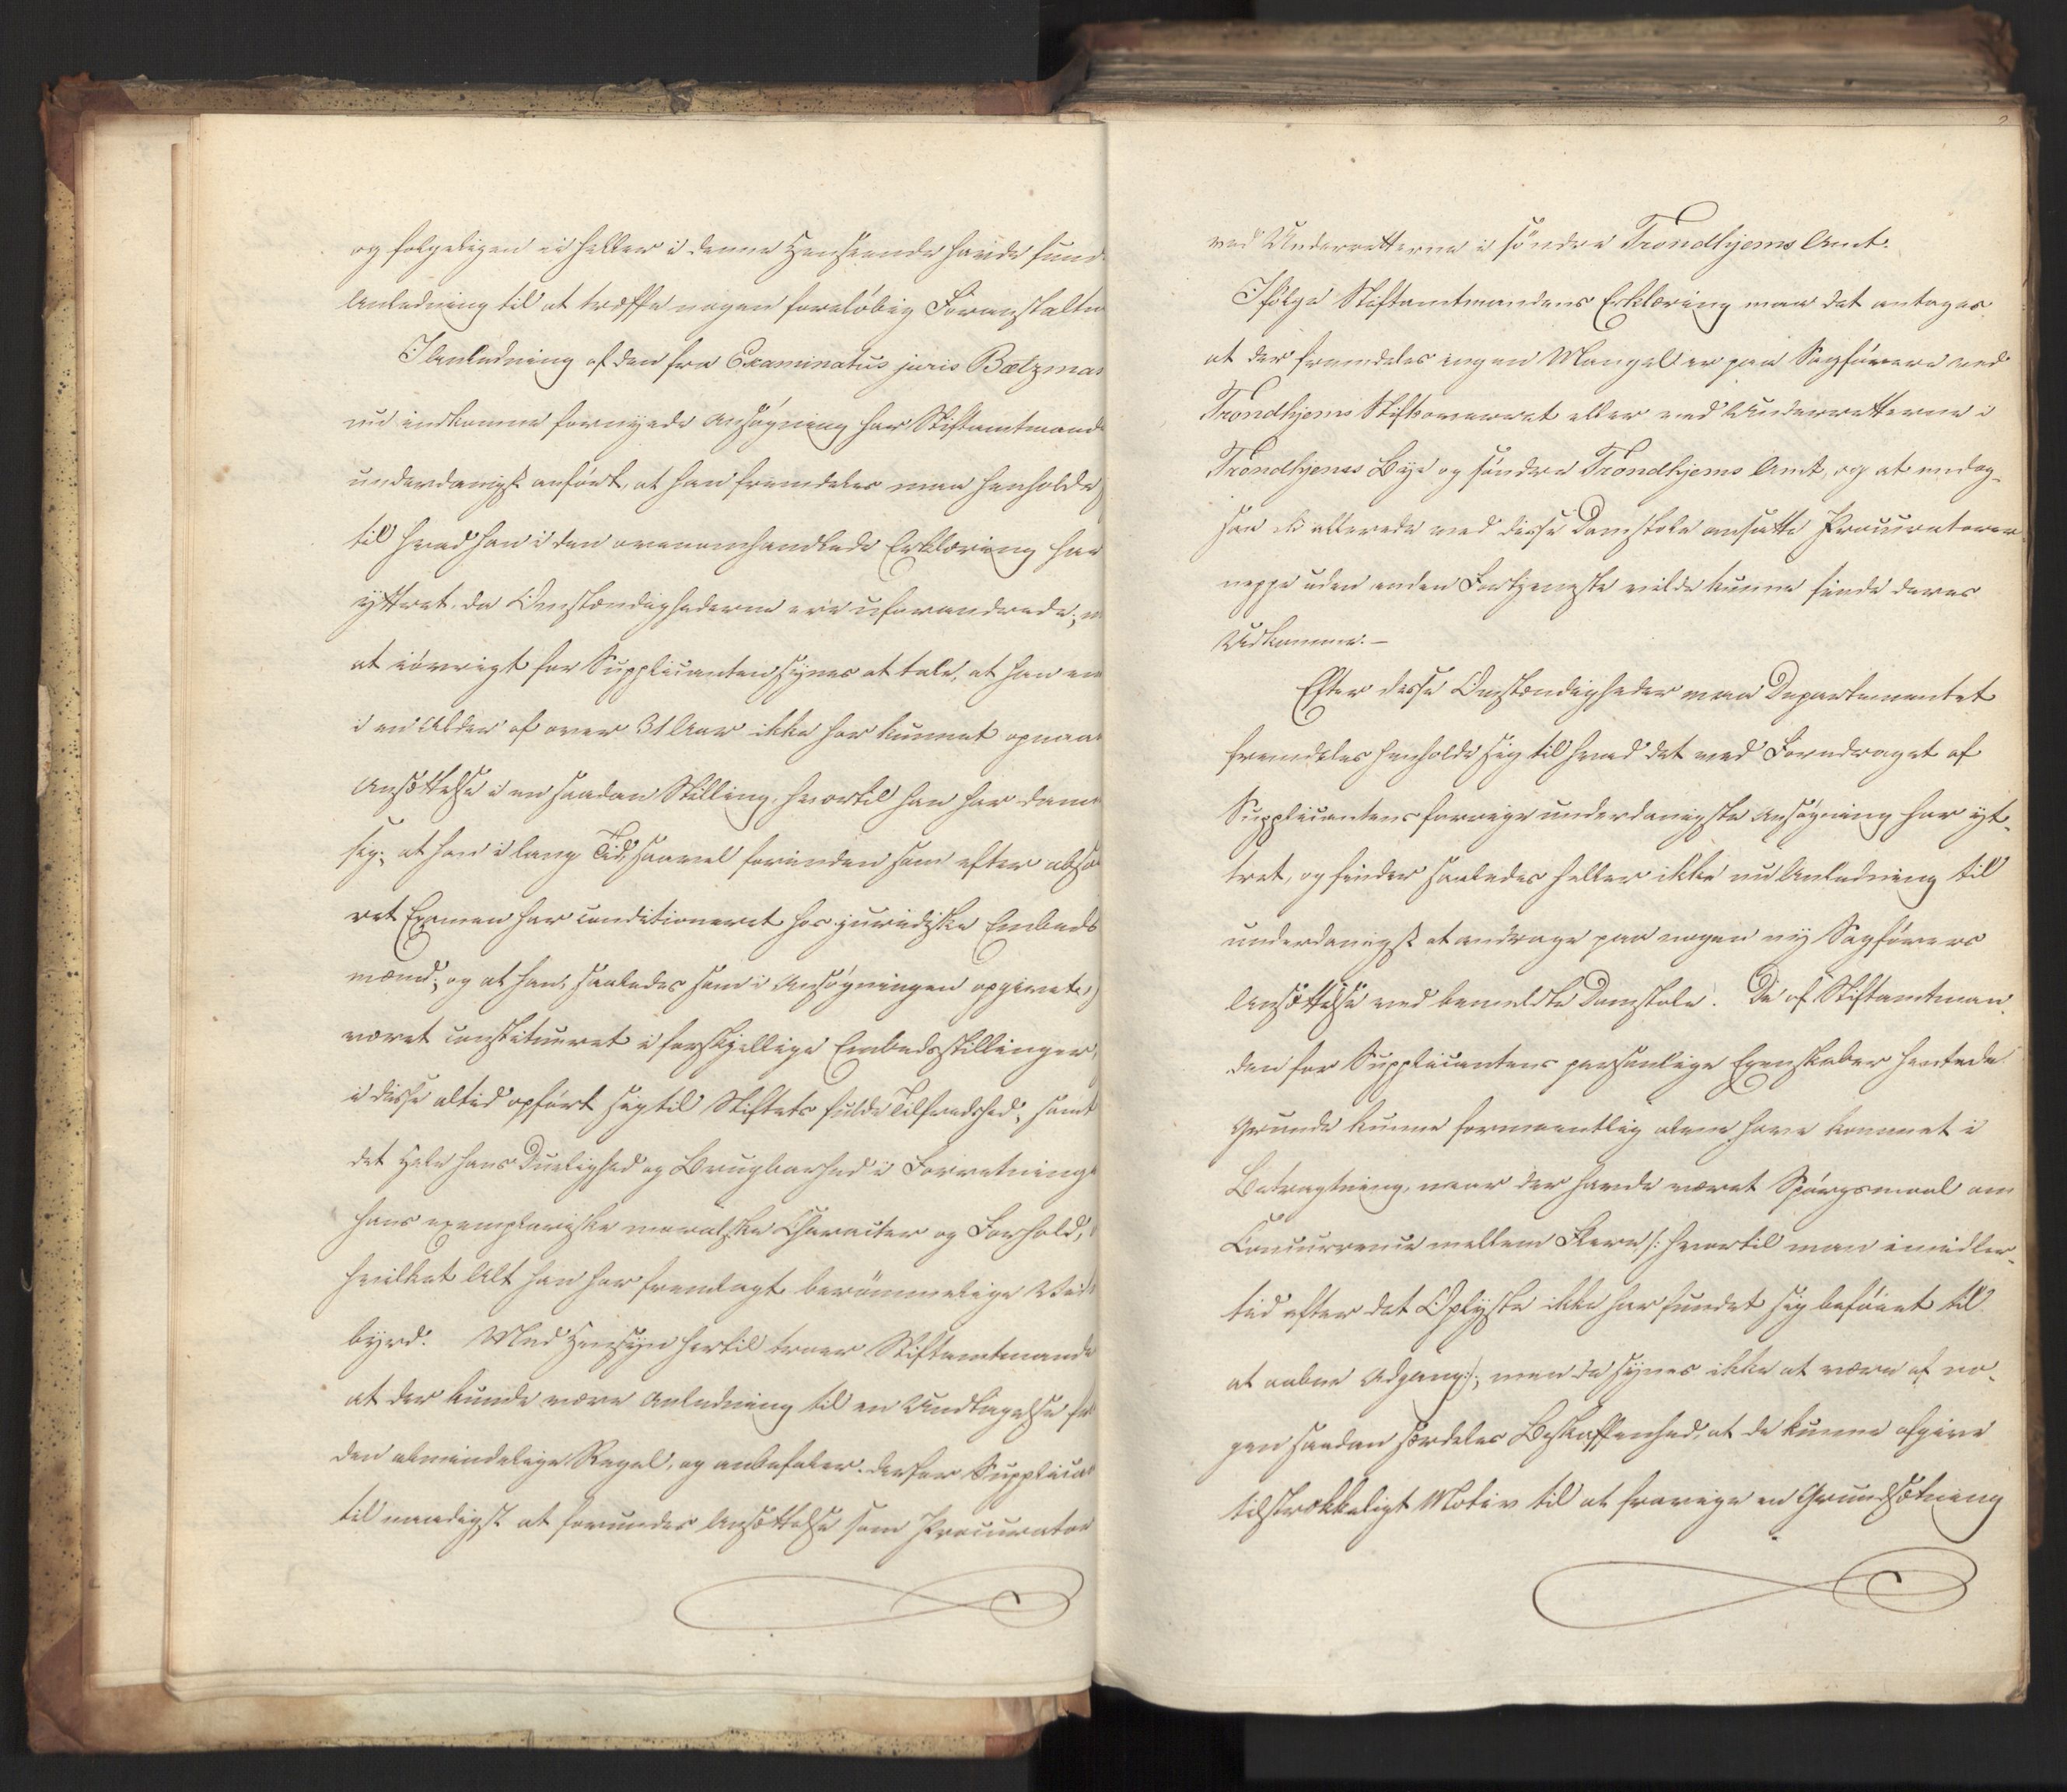 og følgeligen ei heller i denne Henseende havde fund
Anledning til at træffe nogen foreløbig Foranstaltn
I Anledning af den fra Examinatus juris Bætzman
nu indkomne fornyede Ansøgning har Stiftamtmand
underdanigst anført, at han fremdeles maa henholde
til hvad han i den ovenomhandlede Erklæring har
yttret, da Omstændighederne ere uforandrede; m
at iøvrigt for Supplicanten synes at tale, at han en
i en Alder af over 31 Aar ikke har kunnet opnaae
Ansættelse i en saadan Stilling, hvortil han har danne
sig; at han i lang Tid, saavel forinden som efter absol
ret Examen har conditioneret hos juridiske Embeds
mænd; og at han, saaledes som i Ansøgningen opgivet,
været constitueret i forskjellige Embedsstillinger,
i disse altid opført sig til Stiftets fulde Tilfredshed, samt
det Hele hans Duelighed og Brugbarhed i Forretninge
hans exemplariske moralske Character og Forhold,
hvilket Alt han har fremlagt berømmelige Vid
byrd. Med Hensyn hertil troer Stiftamtmande
at der kunde være Anledning til en Undtagelse fr
den almindelige Regel, og anbefaler derfor Supplican
til naadigst at forundes Ansættelse som Procurator
ved Underretterne i søndre Trondhjems Amt.
Ifølge Stiftamtmandens Erklæring maa det antages
at der fremdeles ingen Mangel er paa Sagførere ved
Trondhjems Stiftsoverret eller ved Underretterne i
Trondhjems Bye og søndre Trondhjems Amt, og at endog-
saa de allerede ved disse Domstole ansatte Procuratorer
neppe uden anden Fortjeneste vilde kunne finde deres
Udkomme. —
Efter disse Omstændigheder maa Departementet
fremdeles henholde sig til hvad det ved Foredraget af
Supplicantens forrige underdanigste Ansøgning har yt-
tret, og finder saaledes heller ikke nu Anledning til
underdanigst at andrage paa nogen ny Sagførers
Ansættelse ved bemeldte Domstole. De af Stiftamtman-
den for Supplicantens personlige Egenskaber hentede
Grunde kunne formeentlig alene have kommet i
Betragtning, naar der havde været Spørgsmaal om
Concurrence mellem Flere /: hvortil man imidler-
tid efter det Oplyste ikke har fundet sig beføiet til
at aabne Adgang :/; men de synes ikke at være af no-
gen saadan særdeles Beskaffenhed, at de kunne afgive
tilstrækkeligt Motiv til at fravige en Grundsætning